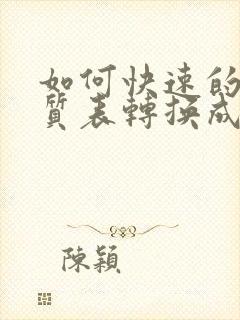 如何快速的
質表轉換成
陳穎